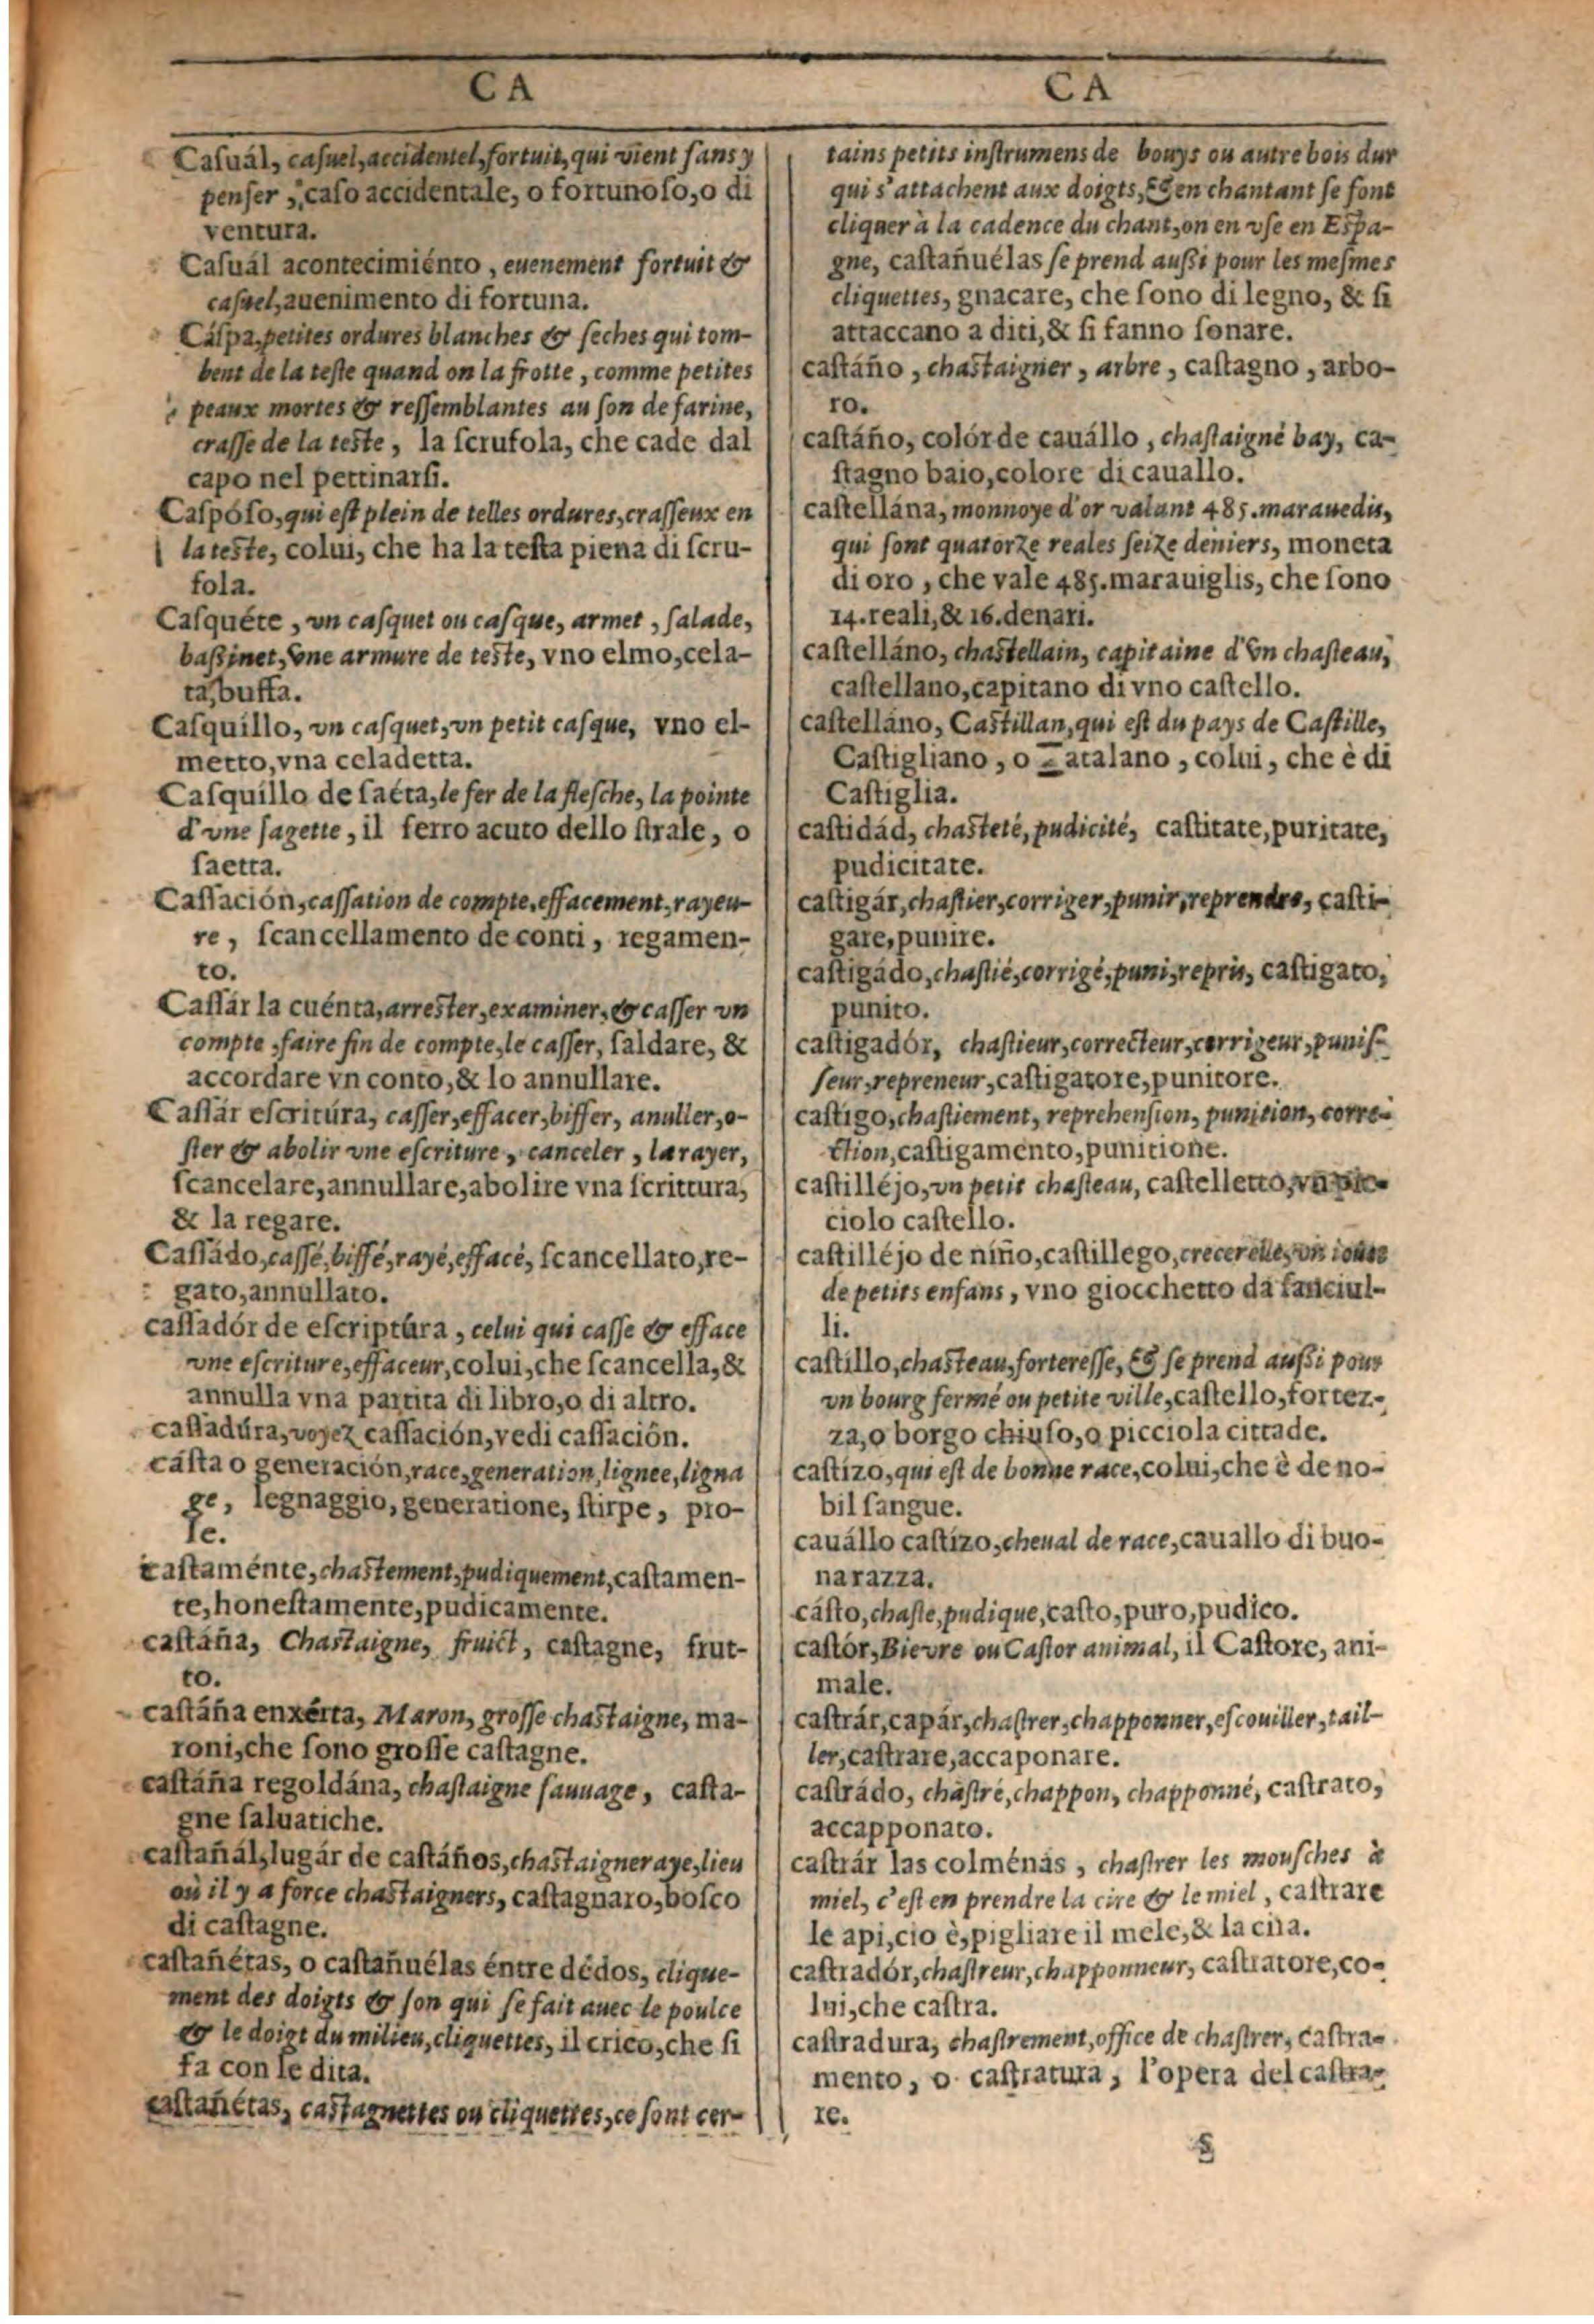 CA
Caſuál, caſuel, accidentel, fortuit, qui vient ſans y
penſer, caſo accidentale, o fortunoſo, o di
ventura.
Caſuál acontecimiénto, euenement fortuit &
caſuel, auenimento di fortuna.
Cáſpa, petites ordures blanches & ſeches qui tom-
bent de la teſte quand on la frotte, comme petites
peaux mortes & reſſemblantes au ſon de farine,
craſſe de la teſte, la ſcrufola, che cade dal
capo nel pettinarſi.
Caſpóſo, qui eſt plein de telles ordures, craſſeux en
la teſte, colui, che ha la teſta piena di ſcru-
fola.
Caſquéte, vn caſquet ou caſque, armet, ſalade,
baſsinet, vne armure de teſte, vno elmo, cela-
ta, buffa.
Caſquíllo, vn caſquet, vn petit caſque, vno el-
metto, vna celadetta.
Caſquíllo de ſaéta, le fer de la fleſche, la pointe
d'vne ſagette, il ferro acuto dello ſtrale, o
ſaetta.
Caſſación, caſſation de compte, effacement, rayeu-
re, ſcancellamento de conti, regamen-
to.
Caſſár la cuénta, arreſter, examiner, & caſſer vn
compte, faire fin de compte, le caſſer, ſaldare, &
accordare vn conto, & lo annullare.
Caſſár eſcritúra, caſſer, effacer, biffer, anuller, o-
ſter & abolir vne eſcriture, canceler, la rayer,
ſcancelare, annullare, abolire vna ſcrittura,
& la regare.
Caſſádo, caſſé, biffé, rayé, effacé, ſcancellato, re-
gato, annullato.
caſſadór de eſcriptúra, celui qui caſſe & efface
vne eſcriture, effaceur, colui, che ſcancella, &
annulla vna partita di libro, o di altro.
caſſadúra, voyez caſſación, vedi caſſación.
cáſta o generación, race, generation, lignee, ligna
ge, legnaggio, generatione, ſtirpe, pro-
le.
caſtaménte, chaſtement, pudiquement, caſtamen-
te, honeſtamente, pudicamente.
caſtáña, Chaſtaigne, fruict, caſtagne, frut-
to.
caſtáña enxérta, Maron, groſſe chaſtaigne, ma-
roni, che ſono groſſe caſtagne.
caſtáña regoldána, chaſtaigne ſauuage, caſta-
gne ſaluatiche.
caſtañál, lugár de caſtáños, chaſtaigneraye, lieu
où il y a force chaſtaigners, caſtagnaro, boſco
di caſtagne.
caſtañétas, o caſtañuélas éntre dédos, clique-
ment des doigts & ſon qui ſe fait auec le poulce
& le doigt du milieu, cliquettes, il crico, che ſi
fa con le dita.
caſtañétas, caſtagnettes ou cliquettes, ce ſont cer-
CA
tains petits inſtrumens de bouys ou autre bois dur
qui s'attachent aux doigts, & en chantant ſe font
cliquer à la cadence du chant, on en vſe en Eſpa-
gne, caſtañuélas ſe prend auſsi pour les meſmes
cliquettes, gnacare, che ſono di legno, & ſi
attaccano a diti, & ſi fanno ſonare.
caſtáño, chaſtaigner, arbre, caſtagno, arbo-
ro.
caſtáño, colór de cauállo, chaſtaigné bay, ca-
ſtagno baio, colore di cauallo.
caſtellána, monnoye d'or valant 485. marauedis,
qui ſont quatorze reales ſeize deniers, moneta
di oro, che vale 485. marauiglis, che ſono
14. reali, & 16. denari.
caſtelláno, chaſtellain, capitaine d'vn chaſteau,
caſtellano, capitano di vno caſtello.
caſtelláno, Caſtillan, qui eſt du pays de Caſtille,
Caſtigliano, o Catalano, colui, che è di
Caſtiglia.
caſtidád, chaſteté, pudicité, caſtitate, puritate,
pudicitate.
caſtigár, chaſtier, corriger, punir, reprendre, caſti-
gare, punire.
caſtigádo, chaſtié, corrigé, puni, repris, caſtigato,
punito.
caſtigadór, chaſtieur, correcteur, corrigeur, puniſ-
ſeur, repreneur, caſtigatore, punitore.
caſtigo, chaſtiement, reprehenſion, punition, corre-
ction, caſtigamento, punitione.
caſtilléjo, vn petit chaſteau, caſtelletto, vn pic-
ciolo caſtello.
caſtilléjo de níño, caſtillego, crecerelle, vn iouet
de petits enfans, vno giocchetto da fanciul-
li.
caſtíllo, chaſteau, fortereſſe, & ſe prend auſsi pour
vn bourg fermé ou petite ville, caſtello, fortez-
za, o borgo chiuſo, o picciola cittade.
caſtízo, qui eſt de bonne race, colui, che è de no-
bil ſangue.
cauállo caſtízo, cheual de race, cauallo di buo-
na razza.
cáſto, chaſte, pudique, caſto, puro, pudico.
caſtór, Bievre ou Caſtor animal, il Caſtore, ani-
male.
caſtrár, capár, chaſtrer, chapponner, eſcouiller, tail-
ler, caſtrare, accaponare.
caſtrádo, chaſtré, chappon, chapponné, caſtrato,
accapponato.
caſtrár las colménas, chaſtrer les mouſches à
miel, c'eſt en prendre la cire & le miel, caſtrare
le api, cio è, pigliare il mele, & la cira.
caſtradór, chaſtreur, chapponneur, caſtratore, co-
lui, che caſtra.
caſtradura, chaſtrement, office de chaſtrer, caſtra-
mento, o caſtratura, l'opera del caſtra-
re.